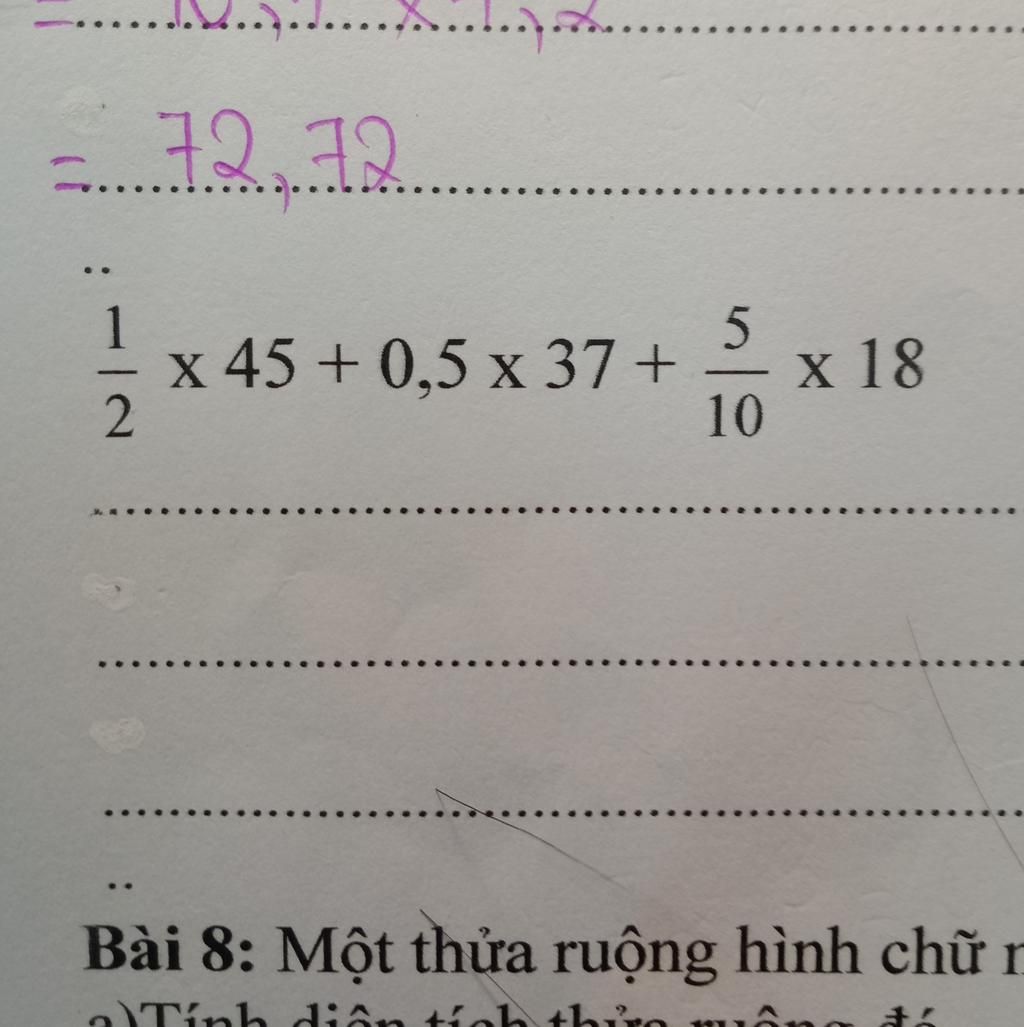 = 72,72
..
1/2 x 45 + 0,5 x 37 + 5/10 x 18
..
Bài 8: Một thửa ruộng hình chữ
a)Tính diện tích thửa ruộng đó